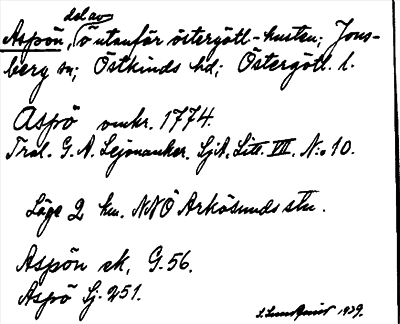 del av
Aspön, ö utanför östergötl-kusten; Jons-
berg sn; Östkinds hd; Östergötl. l.
Aspö omkr. 1774.
Trol. G. A. Lejonanker. SjA. Litt. VII. No 10.
Läge 2 km. NNÖ Arkösunds stn.
Aspön ek, G. 56.
Aspö Sj. 251.
1939.